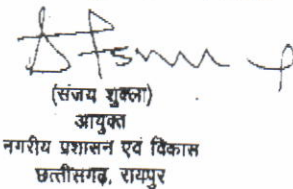 (संजय शुक्ला)
आयुक्त
नगरीय प्रशासन एवं विकास
छत्तीसगढ़, रायपुर